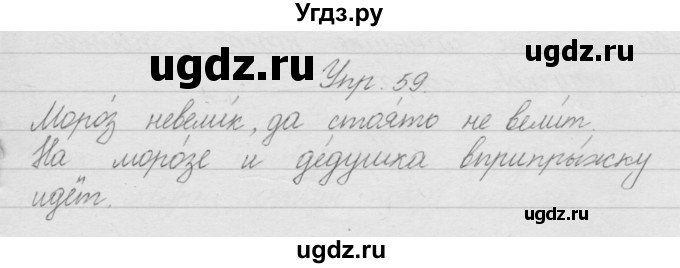 Угдз.ру
ugdz.ru ugdz.ru
Упр. 59.
Моро́з невели́к, да стоя́то не вели́т.
На моро́зе и де́душка вприпры́жку
идёт.
ugdz.ru
ugdz.ru